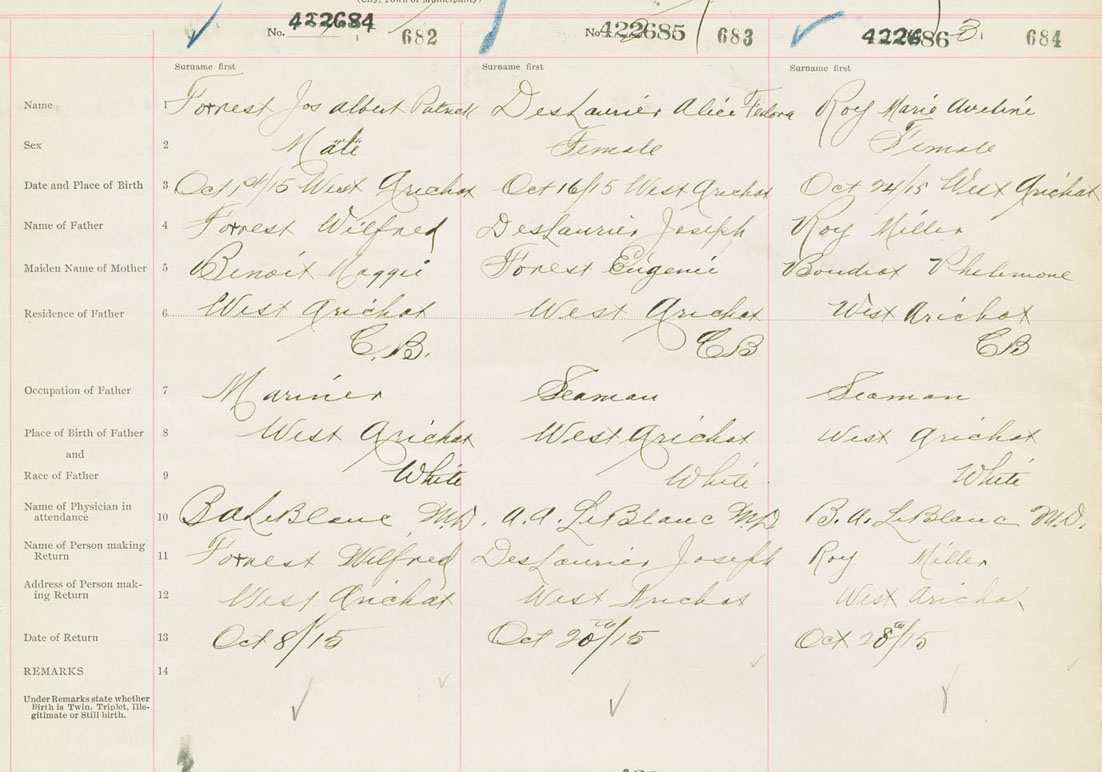 (City, Town or Municipality)
No. 422684 682 No. 422685 683 422686 684
Surname first Surname first Surname first
Name 1 Forrest Jos Albert Patrick DesLaurier Alice Fedora Roy Marie Aveline
Sex 2 Male Female Female
Date and Place of Birth 3 Oct 1st/15 West Arichat Oct 16/15 West Arichat Oct 24/15 West Arichat
Name of Father 4 Forrest Wilfred DesLaurier Joseph Roy Miller
Maiden Name of Mother 5 Benoit Maggie Forest Eugenie Boudrot Philimone
Residence of Father 6 West Arichat West Arichat West Arichat
C.B. CB CB
Occupation of Father 7 Mariner Seaman Seaman
Place of Birth of Father 8 West Arichat West Arichat West Arichat
and
Race of Father 9 White White White
Name of Physician in
attendance 10 B A LeBlanc M.D. A.A. LeBlanc M.D B.A. LeBlanc M.D.
Name of Person making
Return 11 Forrest Wilfred DesLaurier Joseph Roy Miller
Address of Person mak-
ing Return 12 West Arichat West Arichat West Arichat
Date of Return 13 Oct 8/15 Oct 20th/15 Oct 28th/15
REMARKS 14
Under Remarks state whether
Birth is Twin, Triplet, Ille-
gitimate or Still birth.